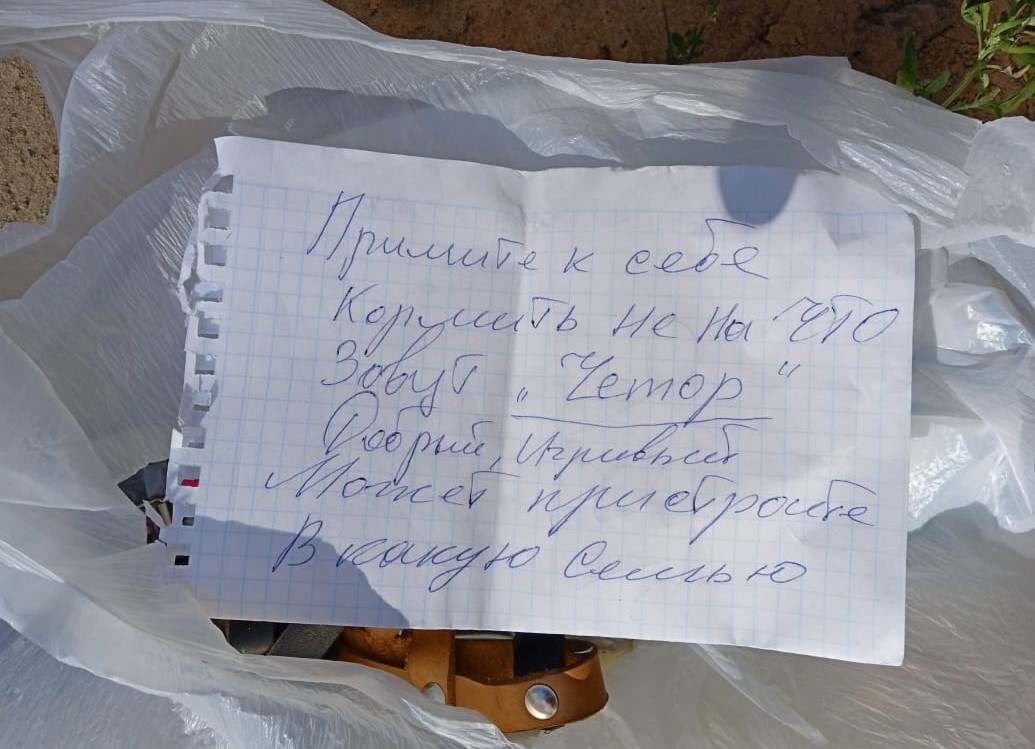 Примите к себе
Кормить не на что
Зовут „Чемор"
Добрый, Игривый
Может пристроите
В какую Семью